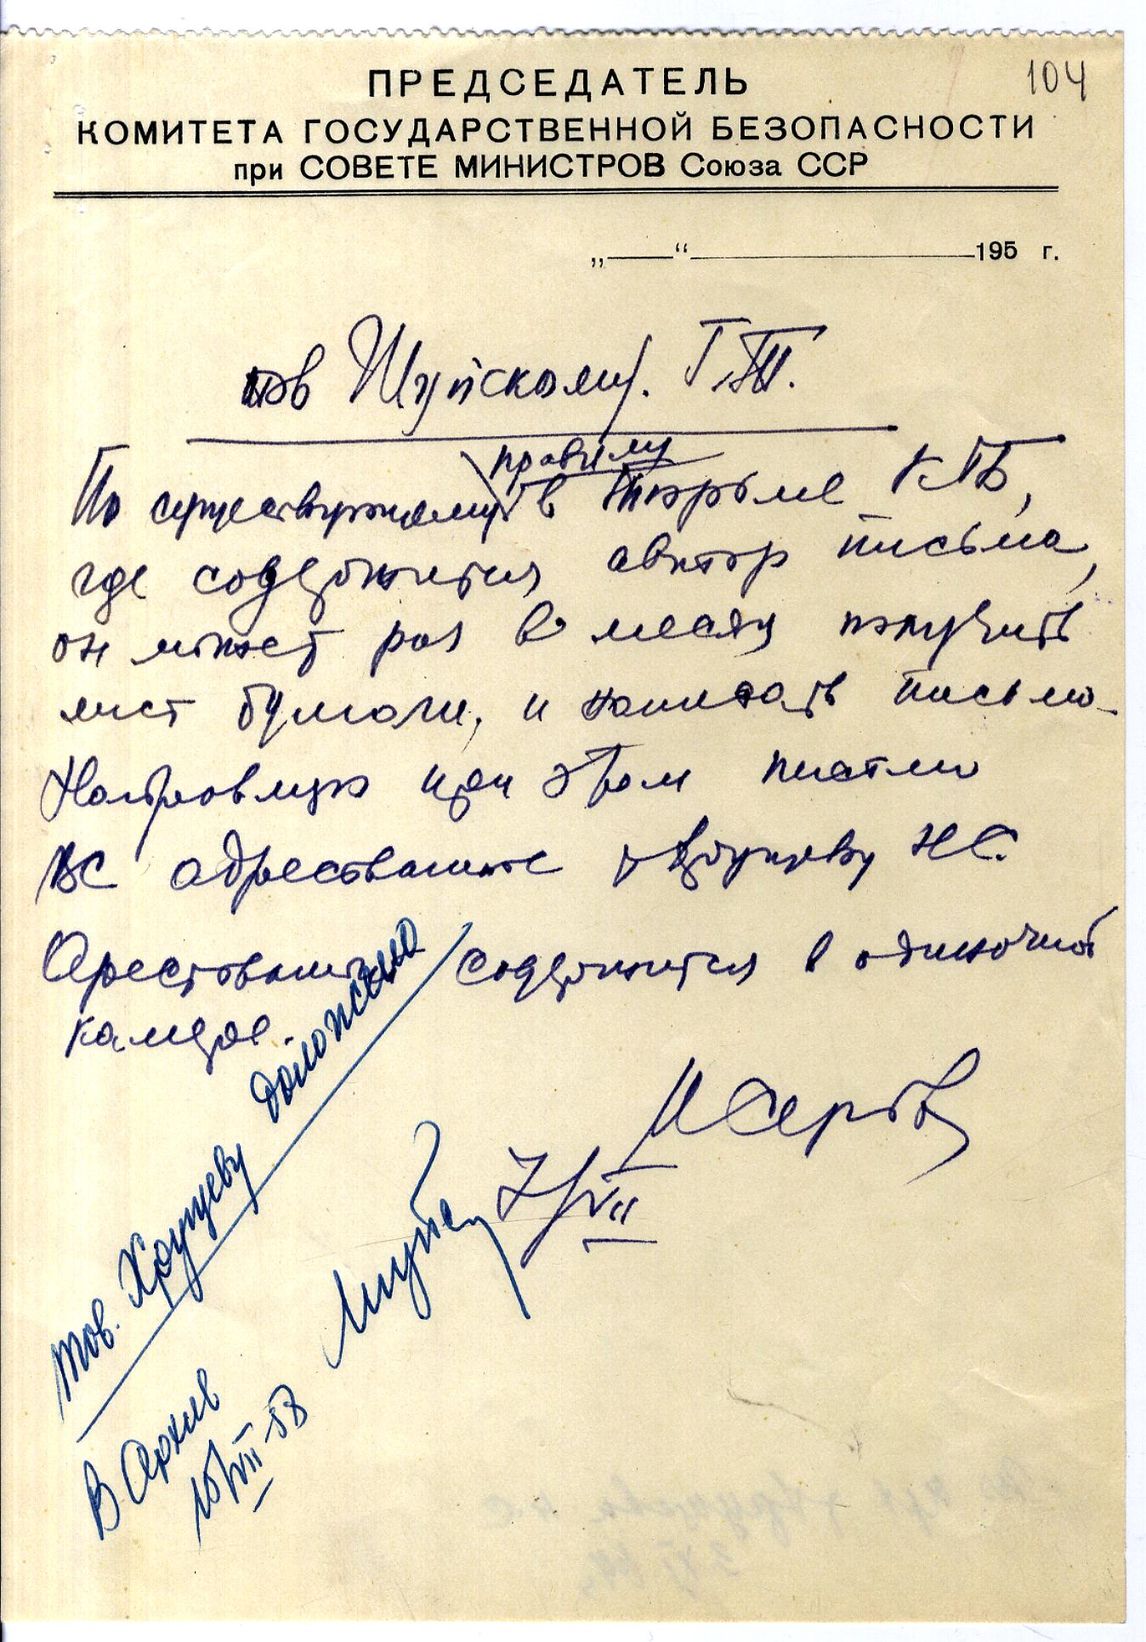 104
ПРЕДСЕДАТЕЛЬ
КОМИТЕТА ГОСУДАРСТВЕННОЙ БЕЗОПАСНОСТИ
при СОВЕТЕ МИНИСТРОВ Союза ССР
„ “ 195 г.
тов Шуйскому. Г.Т.
правилу
По существующему в тюрьме КГБ,
где содержится автор письма,
он может раз в месяц получить
лист бумаги, и написать письмо.
при этом письмо
адресованное Хрущеву НС.
Арестованный содержится в одиночной
камере.
И Серов
7/VII
тов. Хрущеву доложено
Шуйск
В Архив
15/VII-58